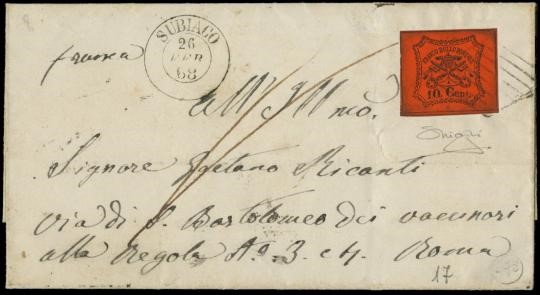 SUBIACO
26
FEB
68
franca
FRANCO BOLLO POSTALE
10. Cent
All'Illmo.
Signore Gaetano Ricanti
via di S. Bartolomeo dei vaccinari
alla Regola No. 3 e 4. Roma
17